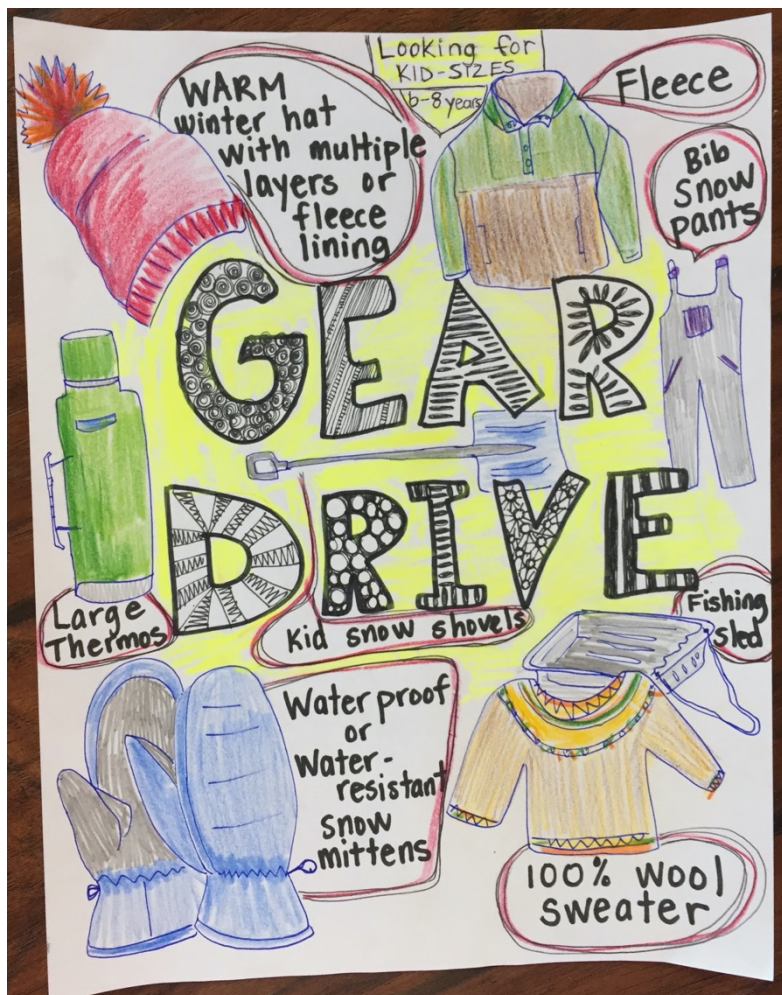 Looking for
KID-SIZES
6-8 years
WARM
winter hat
with multiple
layers or
fleece
lining
Fleece
Bib
Snow
pants
GEAR
DRIVE
Large
Thermos
Kid snow shovels
Fishing
sled
Water proof
or
Water-
resistant
snow
mittens
100% wool
sweater